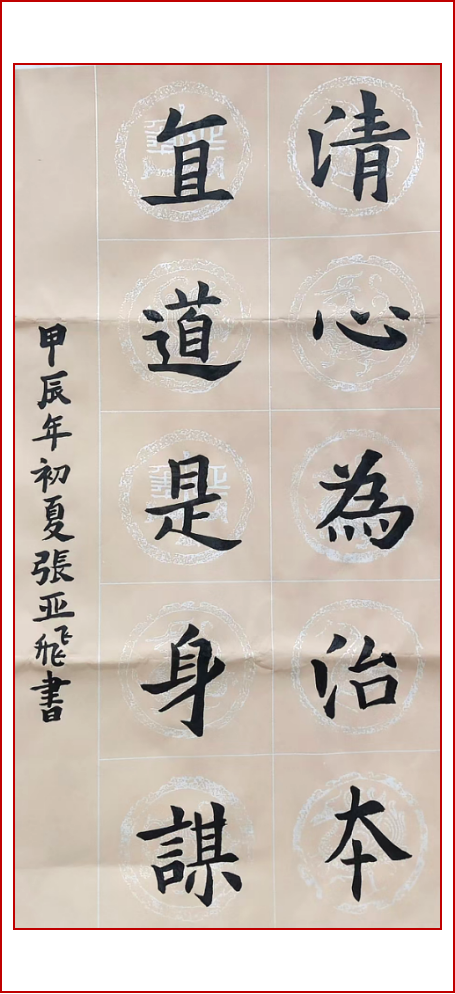 清心為治本
直道是身謀
甲辰年初夏張亚飛書